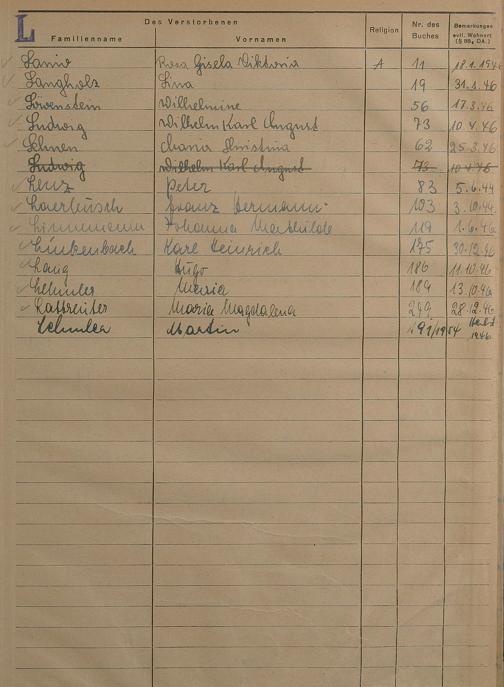 L
Des Verstorbenen
Familienname Vornamen Religion Nr. des Buches Bemerkungen evtl. Wohnort (§ 98, DA.)
Rosa Gisela Viktoria A 11 18.1.1946
Langholz Lina 19 31.1.46
Löwenstein Wilhelmine 56 17.3.46
Ludwig Wilhelm Karl August 73 10.4.46
Lehnen Maria Christina 62 25.3.46
Ludwig Wilhelm Karl August 73 10.4.46
Lenz Peter 83 5.6.44
Franz Hermann 103 3.10.44
Linnemann Johanna Mathilde 119 1.6.46
Linkenbach Karl Heinrich 175 30.12.46
Lang Hugo 186 11.10.46
Lehmler Maria 189 13.10.46
Maria Magdalena 249 28.12.46
Martin 91/1954 Herbst 1946